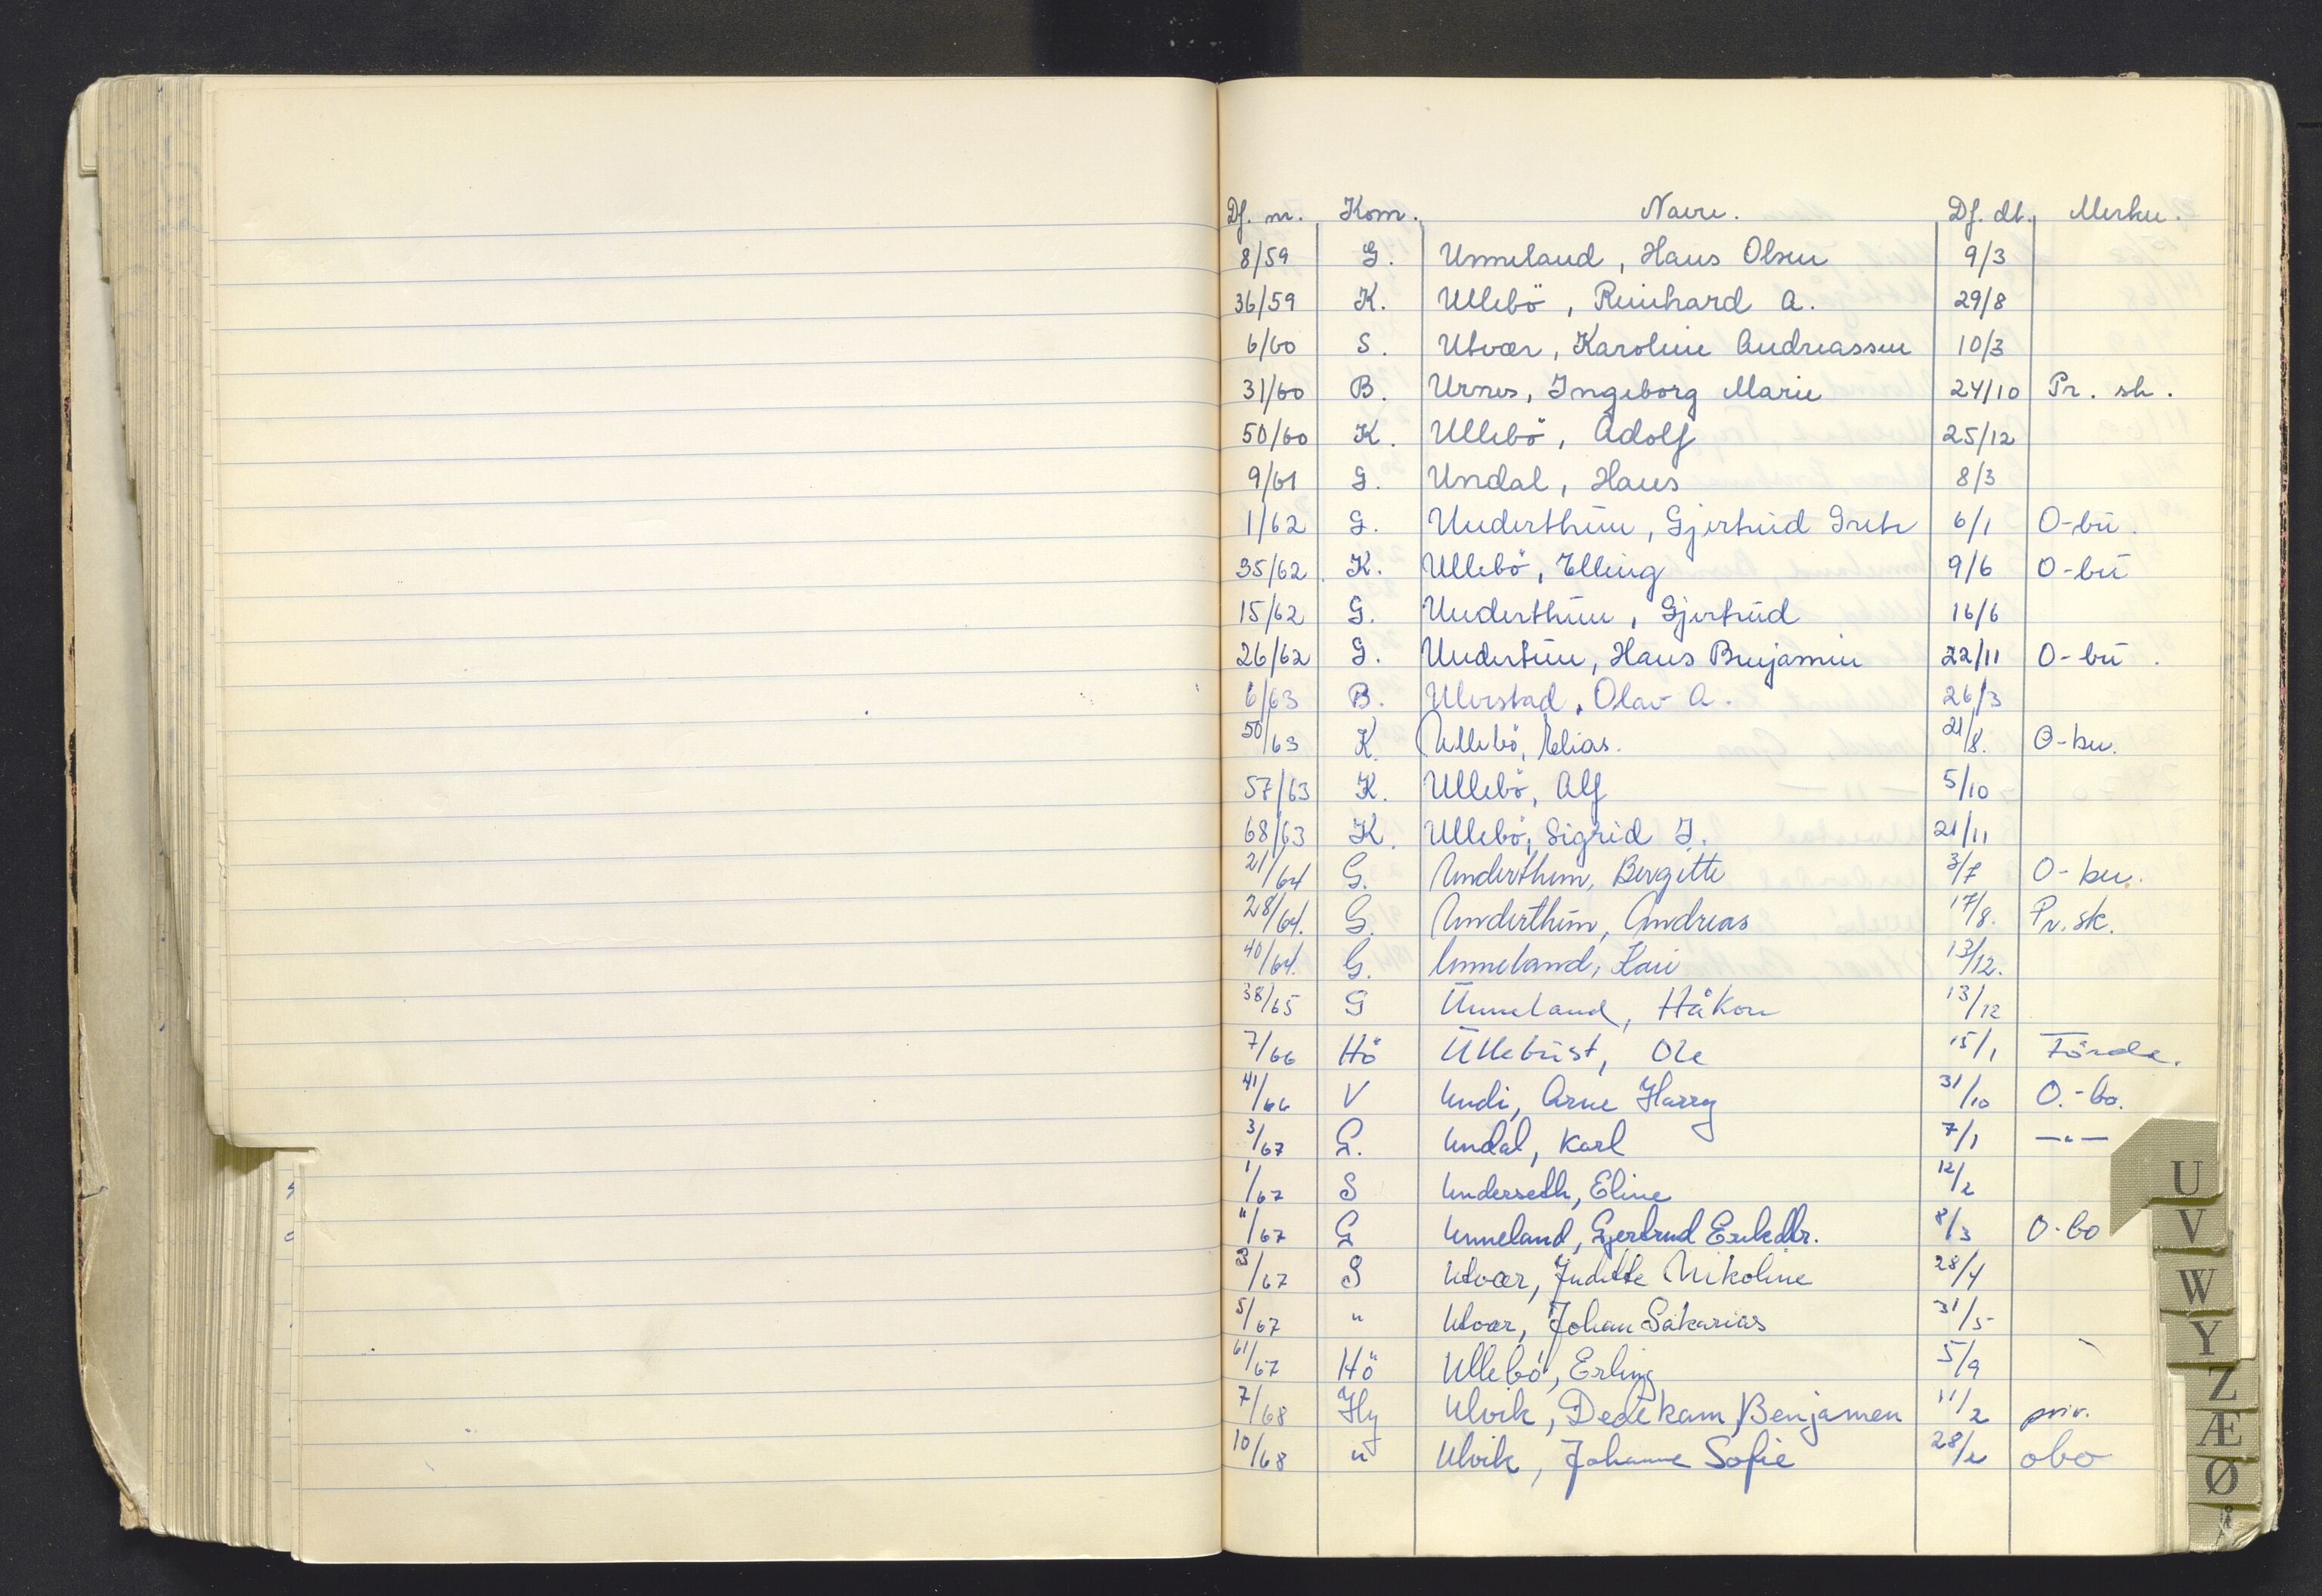 Df. nr. Kom. Navn. Df. dt. Merkn.
8/59 G. Unneland, Hans Olsen 9/3
36/59 K. Ullebö, Reinhard A. 29/8
6/60 S. Utvær, Karoline Andreassen 10/3
31/60 B. Urnes, Ingeborg Marie 24/10 Pr. sk.
50/60 K. Ullebö, Adolf 25/12
9/61 G. Undal, Hans 8/3
1/62 G. Underthun, Gjertrud Grete 6/1 O-bu.
35/62 K. Ullebö, Elling 9/6 O-bu
15/62 G. Underthun, Gjertrud 16/6
26/62 G. Undertun, Hans Benjamin 22/11 O-bu.
6/63 B. Ulvestad, Olav A. 26/3
50/63 K. Ullebö, Elias. 21/8. O-bu.
57/63 K. Ullebö, Alf 5/10
68/63 K. Ullebö, Sigrid J. 21/11
21/64 G. Underthun, Bergitte 3/7 O-bu.
28/64. G. Underthun, Andreas 17/8. Pr. sk.
40/64. G. Unneland, Kari 13/12.
38/65 G Unneland, Håkon 13/12
7/66 Hö Ullebust, Ole 15/1 Förde.
41/66 V Undi, Arne Harry 31/10 O.-bo.
3/67 G. Undal, Karl 7/1 —"—
1/67 S Underseth, Eline 12/2
11/67 G Unneland, Gjertrud Eriksdtr. 8/3 O-bo
3/67 S Utvær, Judithe Nikoline 28/4
5/67 " Utvær, Johan Sakarias 31/5
61/67 Hö Ullebö, Erling 5/9
7/68 Hy Ulvik, Dedekam Benjamen 11/2 priv.
10/68 " Ulvik, Johanne Sofie 28/2 obo
U
V
W
Y
Z
Æ
Ø
Å